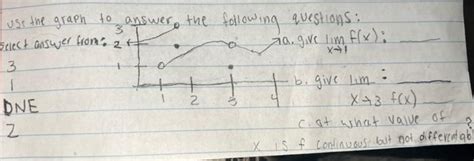 use the graph to answer the following questions:
select answer from:
3
1
DNE
2
3
2
1
1 2 3 4
a. give lim f(x):
x→1
b. give lim =
x→3 f(x)
c. at what value of
x is f continuous but not differentiable?